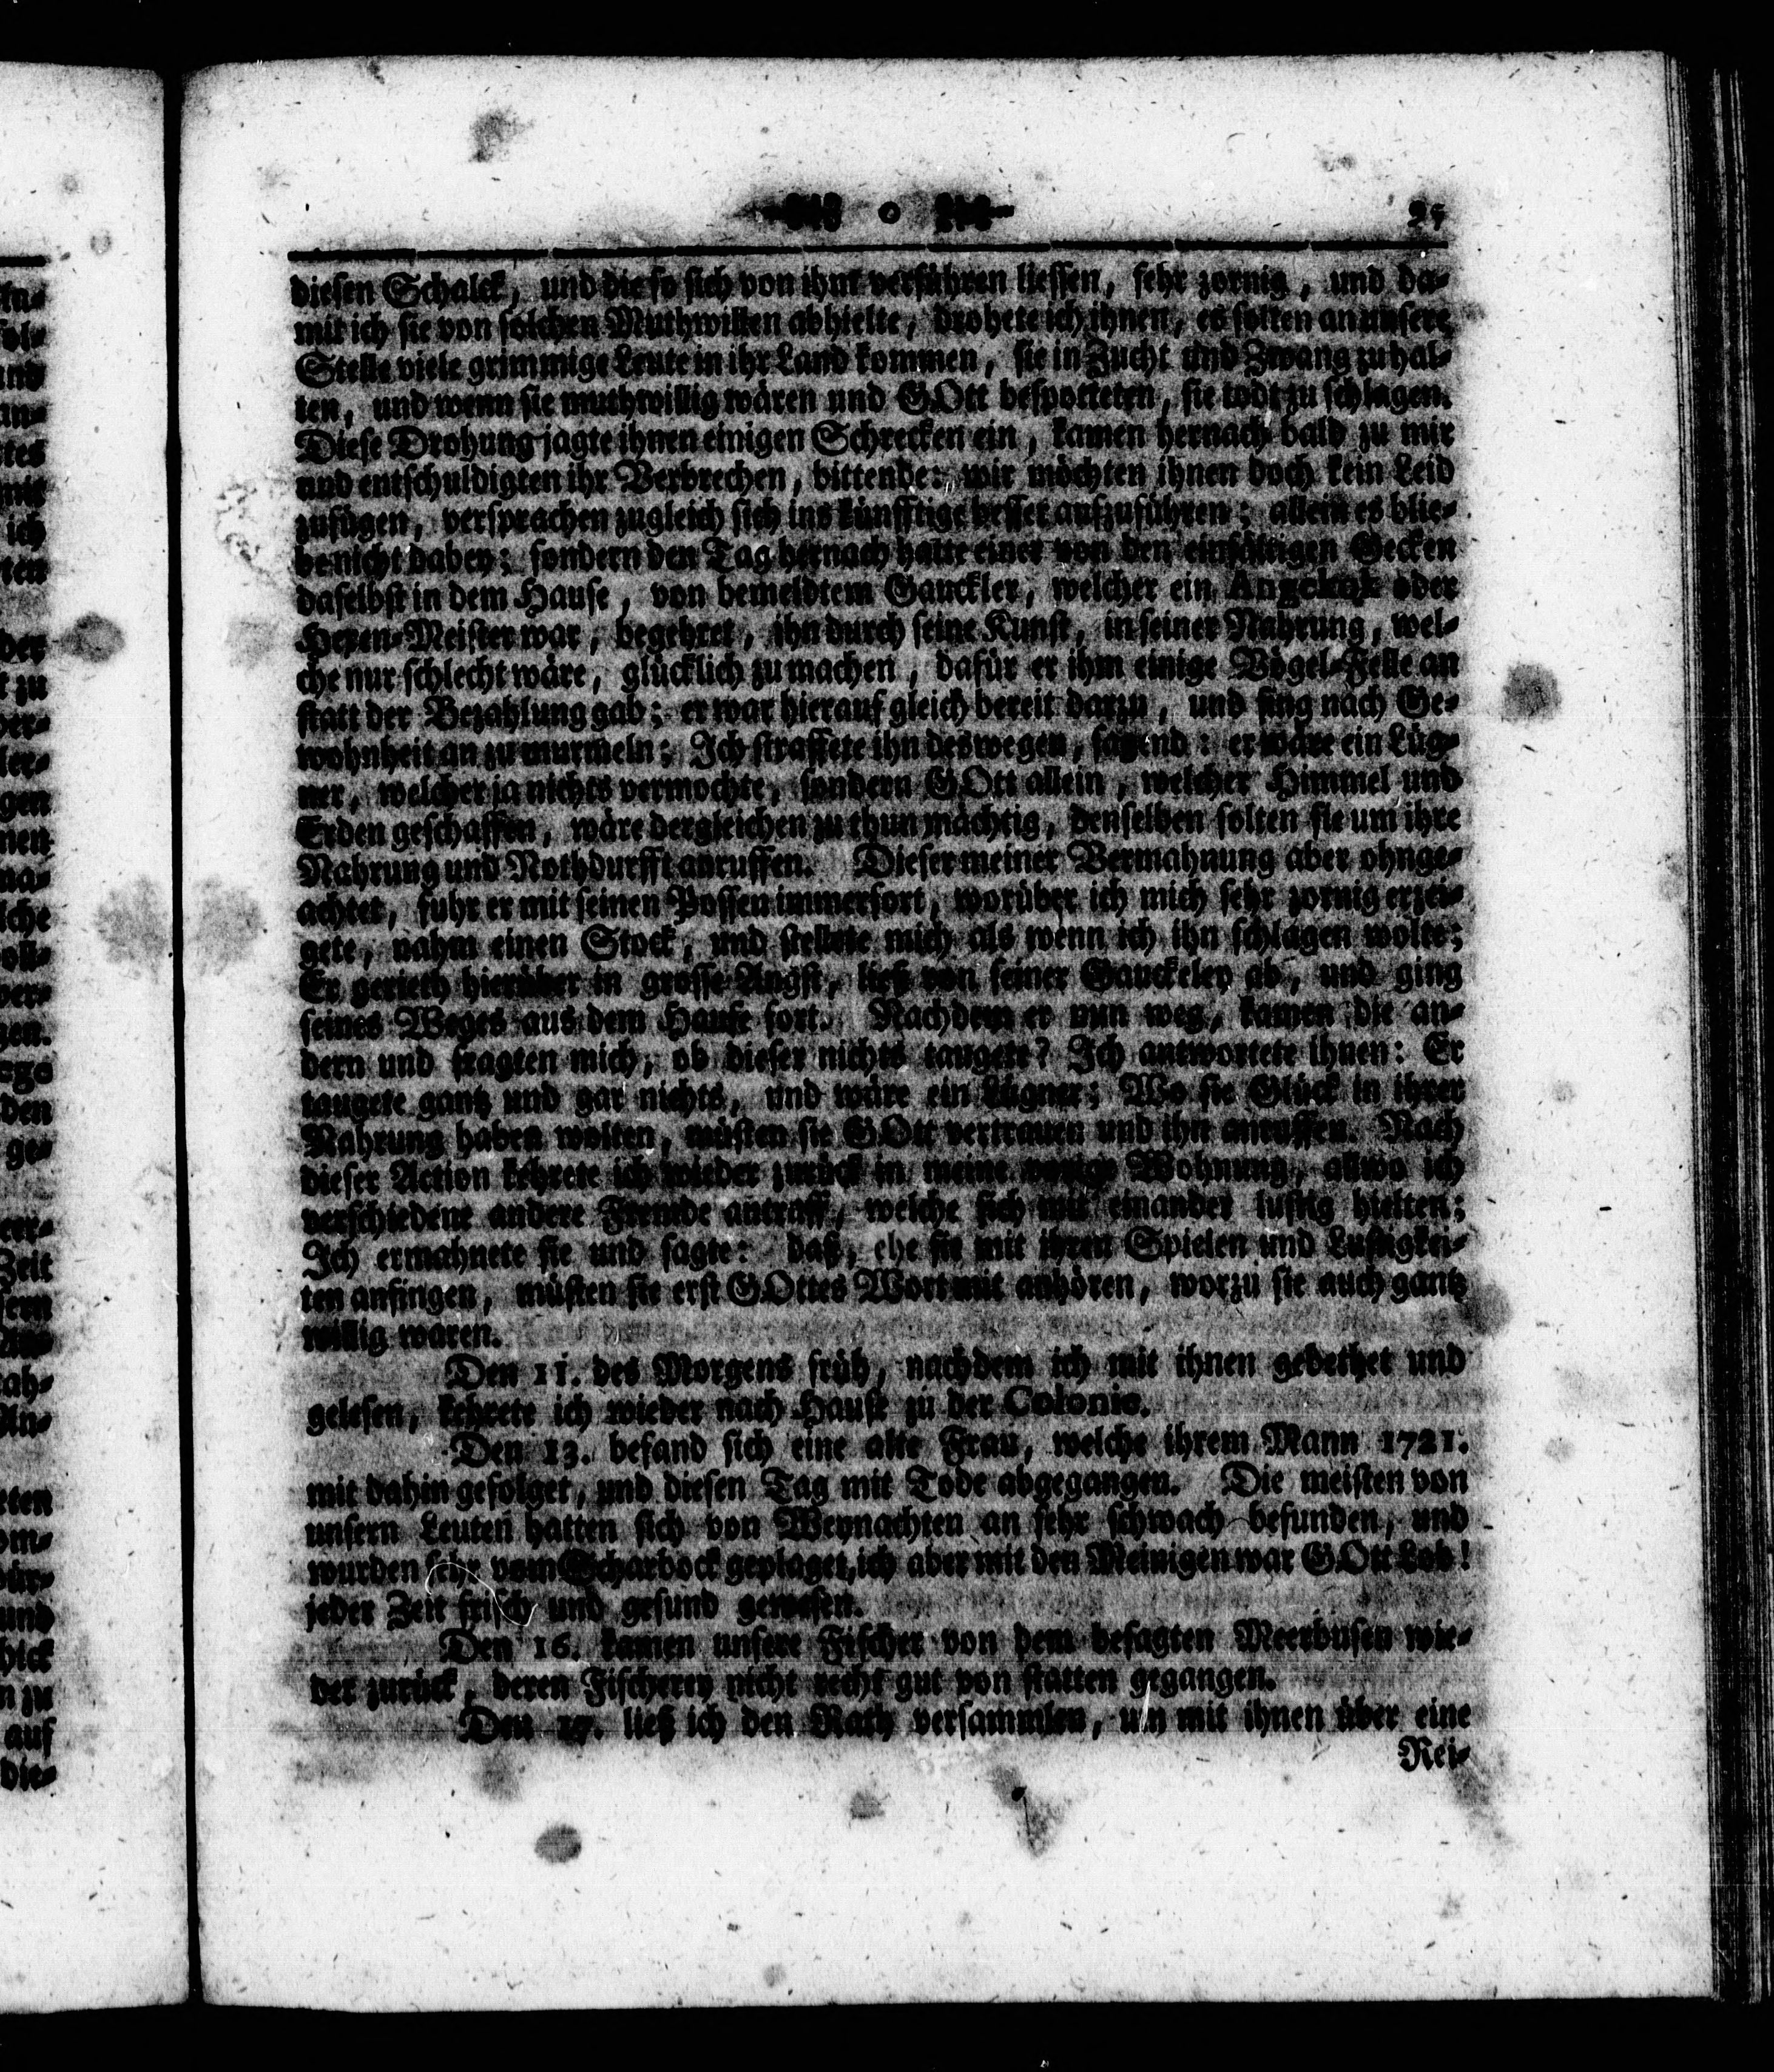 25
diesen Schalck, und die so sich von ihm verführen liessen, sehr zornig, und da-
mit ich sie von solchen Muthwillen abhielte, drohete ich ihnen, es solten an unsere
Stelle viele grimmige Leute in ihr Land kommen, sie in Zucht und Zwang zu hal-
ten, und wenn sie muthwillig wären und GOtt bespotteten, sie todt zu schlagen.
Diese Drohung jagte ihnen einigen Schrecken ein, kamen hernach bald zu mir
und entschuldigten ihr Verbrechen, bittende: wir möchten ihnen doch kein Leid
zufügen, versprachen zugleich sich ins künfftige besser aufzuführen; allein es blie-
be nicht dabey; sondern den Tag hernach hatte einer von den einfältigen Gecken
daselbst in dem Hause, von bemeldtem Gauckler, welcher ein Angekok oder
Hexen-Meister war, begehret, ihn durch seine Kunst, in seiner Nahrung, wel-
che nur schlecht wäre, glücklich zu machen, dafür er ihm einige Vögel-Felle an
statt der Bezahlung gab; er war hierauf gleich bereit darzu, und fing nach Ge-
wohnheit an zu murmeln; Ich straffete ihn deswegen, sagend: er wäre ein Lüg-
ner, welcher ja nichts vermochte, sondern GOtt allein, welcher Himmel und
Erden geschaffen, wäre dergleichen zu thun mächtig, denselben solten sie um ihre
Nahrung und Nothdurfft anruffen. Dieser meiner Vermahnung aber ohnge-
achtet, fuhr er mit seinen Possen immerfort, worüber ich mich sehr zornig erzei-
gete, nahm einen Stock, und stellete mich als wenn ich ihn schlagen wolte;
Er gerieth hierüber in grosse Angst, ließ von seiner Gauckeley ab, und ging
seines Weges aus dem Hause fort. Nachdem er nun weg, kamen die an-
dern und fragten mich, ob dieser nichts taugete? Ich antwortete ihnen: Er
taugete gantz und gar nichts, und wäre ein Lügner; Wo sie Glück in ihrer
Nahrung haben wolten, müsten sie GOtt vertrauen und ihn anruffen. Nach
dieser Action kehrete ich wieder zurück in meine vorige Wohnung, allwo ich
verschiedene andere Fremde antraff, welche sich mit einander lustig hielten;
Ich ermahnete sie und sagte: daß, ehe sie mit ihren Spielen und Lustigkei-
ten anfingen, müsten sie erst GOttes Wort mit anhören, worzu sie auch gantz
willig waren.
Den 11. des Morgens früh, nachdem ich mit ihnen gebethet und
gelesen, kehrete ich wieder nach Hause zu der Colonie.
Den 13. befand sich eine alte Frau, welche ihrem Mann 1721.
mit dahin gefolget, und diesen Tag mit Tode abgegangen. Die meisten von
unsern Leuten hatten sich von Weynachten an sehr schwach befunden, und
wurden sehr vom Scharbock geplaget, ich aber mit den Meinigen war GOtt Lob!
jeder Zeit frisch und gesund gewesen.
Den 16. kamen unsere Fischer von dem besagten Meerbusen wie-
der zurück, deren Fischerey nicht recht gut von statten gegangen.
Den 17. ließ ich den Rath versammlen, um mit ihnen über eine
Rei-